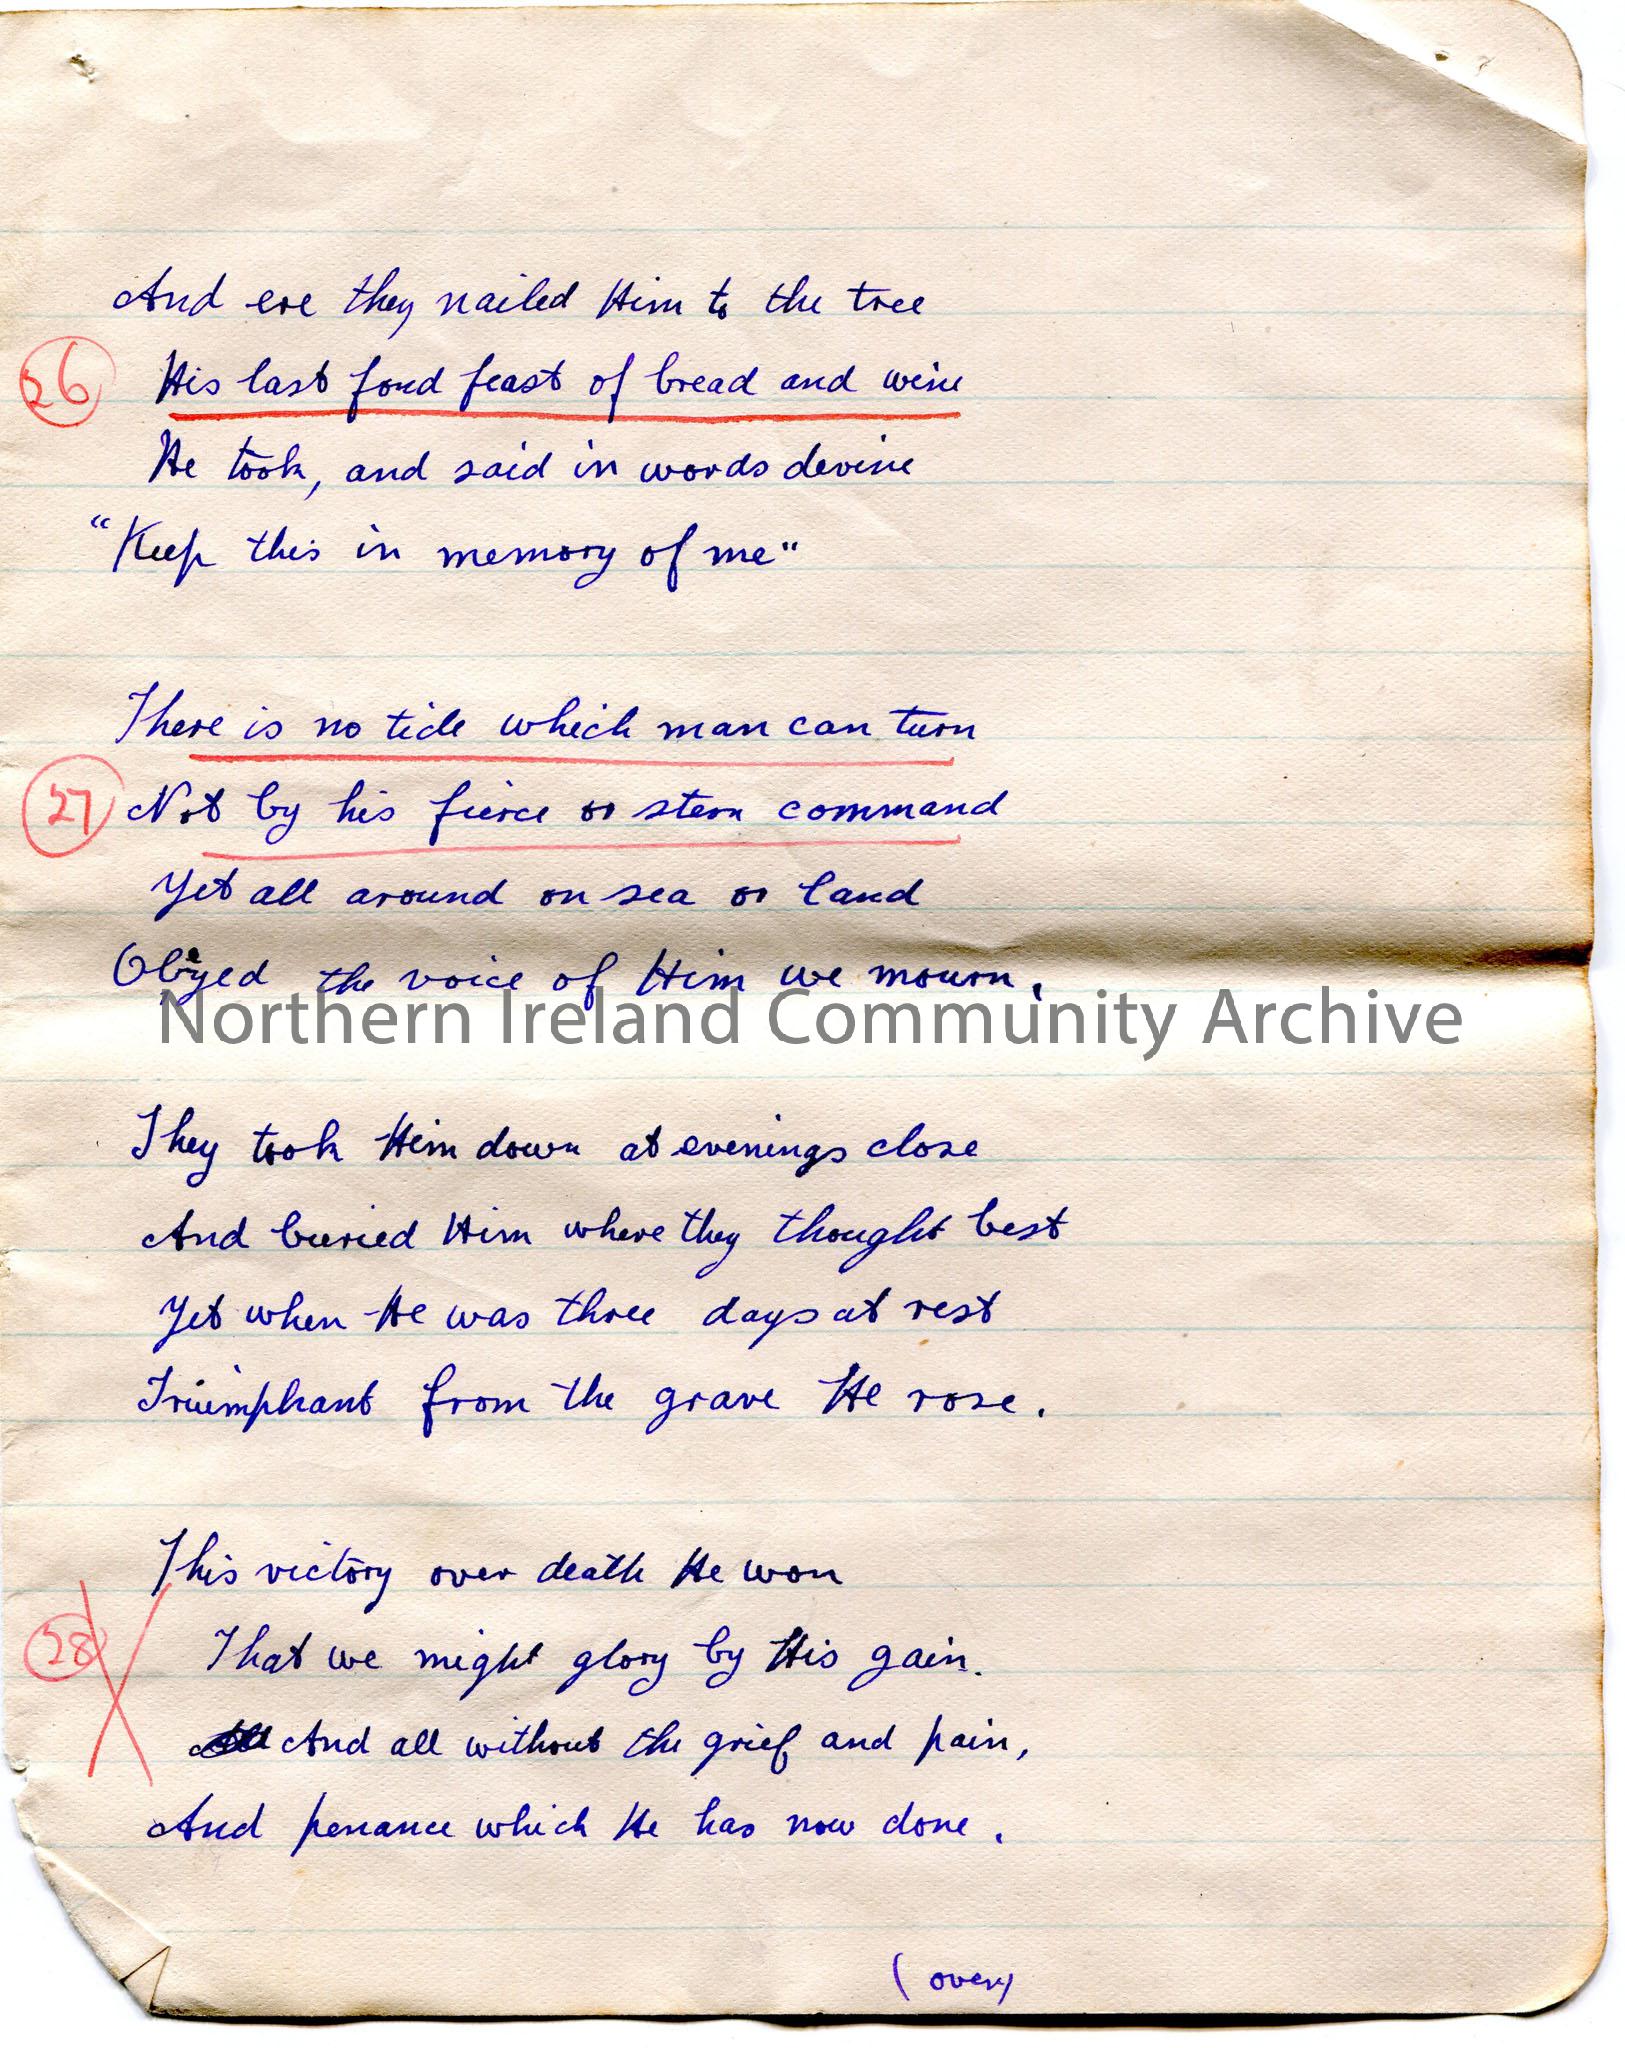 And ere they nailed Him to the tree
26
His last fond feast of bread and wine
He took, and said in words devine
"Keep this in memory of me"
There is no tide which man can turn
27
Not by his fierce or stern command
Yet all around on sea or land
Obeyed the voice of Him we mourn.
Northern Ireland Community Archive
They took Him down at evenings close
And buried Him where they thought best
Yet when He was three days at rest
Triumphant from the grave He rose.
This victory over death He won
28
That we might glory by His gain.
And all without the grief and pain,
And penance which He has now done.
(over)